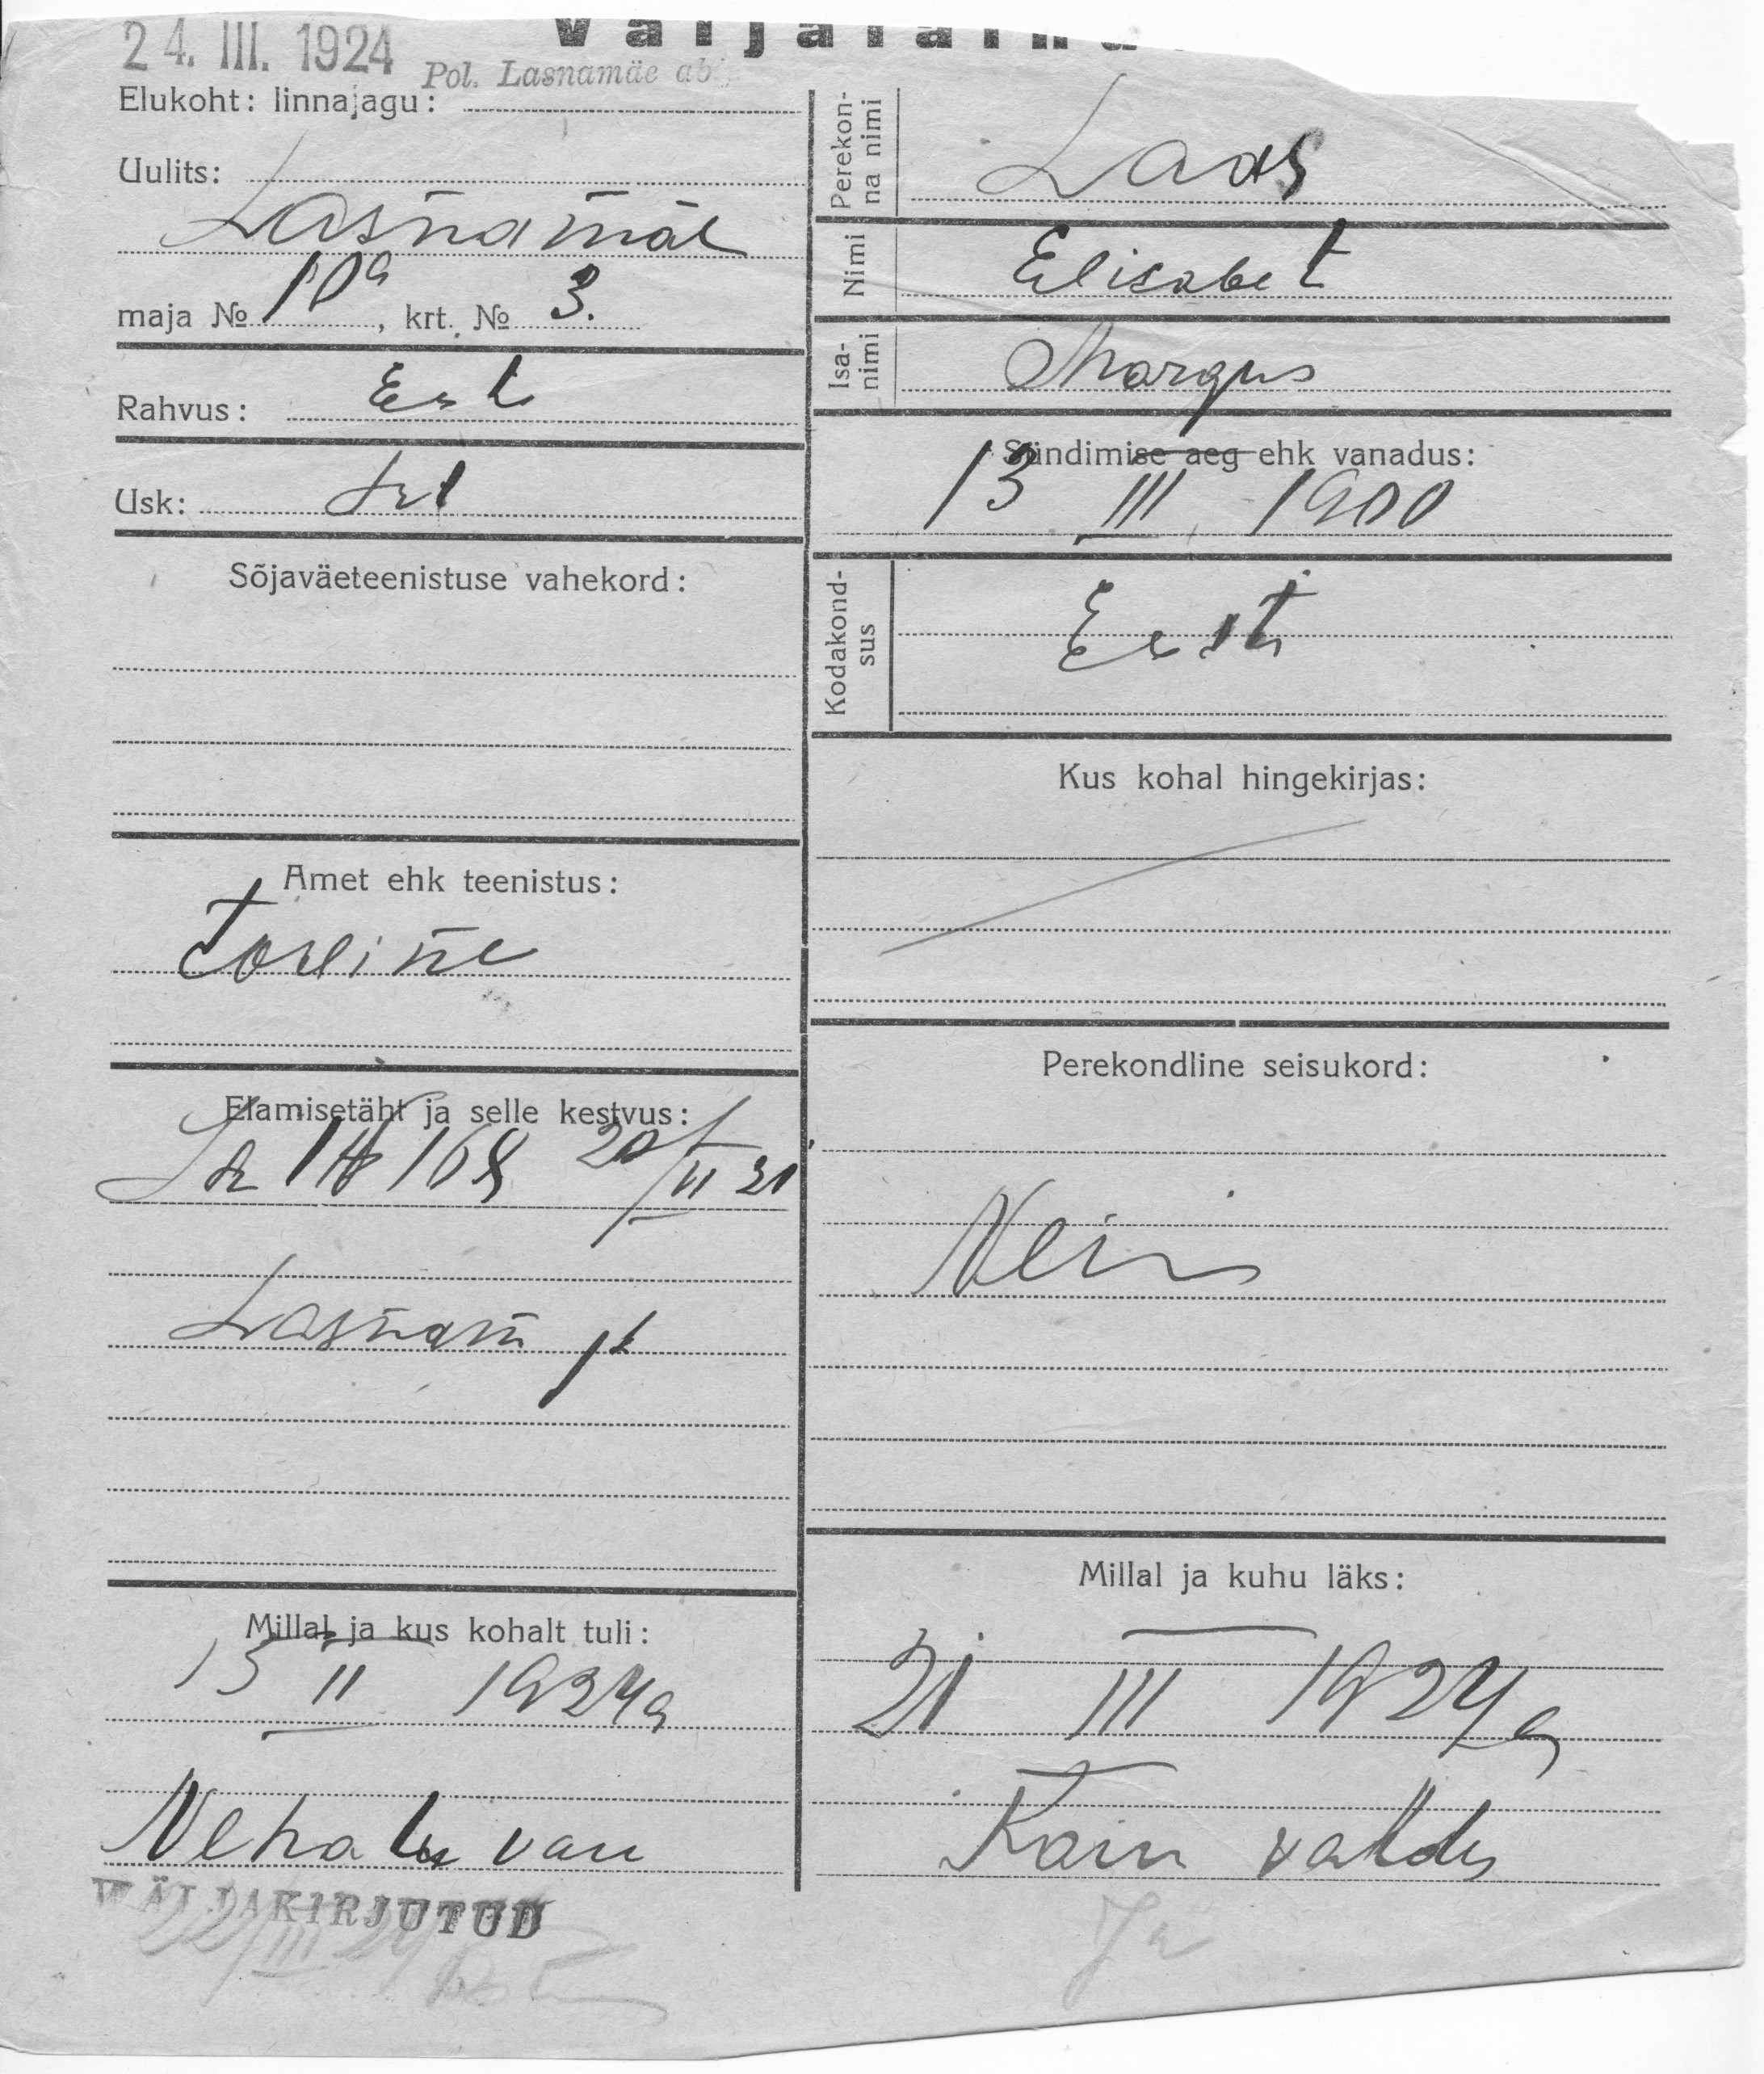 24. III. 1924
Pol. Lasnamäe
Elukoht: linnajagu:
Uulits:
Lasnamäe
maja № 10a, krt. № 3.
Rahvus: Eest
Usk:
Sõjaväeteenistuse vahekord:
Amet ehk teenistus:
Elamisetäht ja selle kestvus:
168 20/II 21
Lasnam
Millal ja kus kohalt tuli:
15 II 1924 a
Nehatu
WÄLJAKIRJUTUD
Perekonna nimi
Laas
Nimi
Elisabet
Isanimi
Margus
Sündimise aeg ehk vanadus:
13 III 1900
Kodakondsus
Eesti
Kus kohal hingekirjas:
Perekondline seisukord:
Neiu
Millal ja kuhu läks:
21 III 1924 a